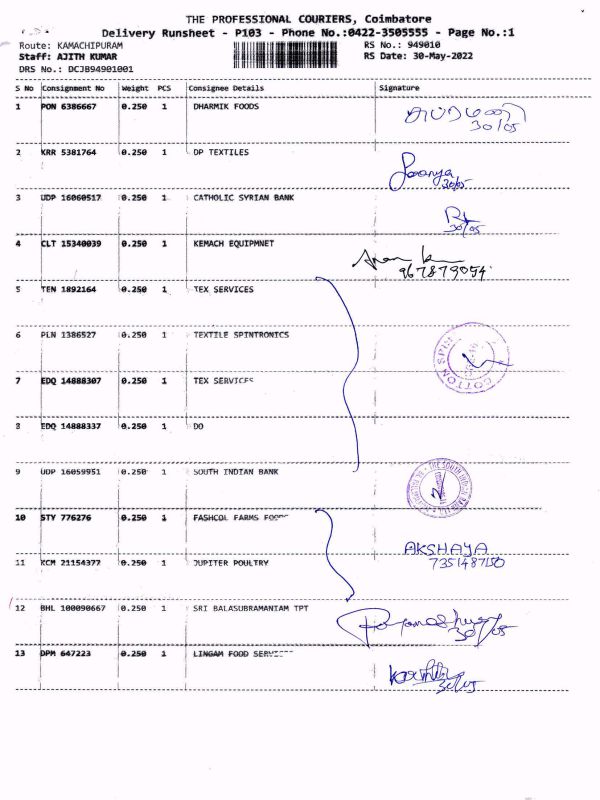 THE PROFESSIONAL COURIERS, Coimbatore
Delivery Runsheet - P103 - Phone No.:0422-3505555 - Page No.:1
Route: KAMACHIPURAM RS No.: 949010
Staff: AJITH KUMAR RS Date: 30-May-2022
DRS No.: DCJB94901001
S No Consignment No Weight PCS Consignee Details Signature
1 PON 6386667 0.250 1 DHARMIK FOODS
30/05
2 KRR 5381764 0.250 1 DP TEXTILES
30/05
3 UDP 16060517 0.250 1 CATHOLIC SYRIAN BANK
30/05
4 CLT 15340039 0.250 1 KEMACH EQUIPMNET
5 TEN 1892164 0.250 1 TEX SERVICES
6 PLN 1386527 0.250 1 TEXTILE SPINTRONICS
COTTON SPIN
7 EDQ 14888307 0.250 1 TEX SERVICES
8 EDQ 14888337 0.250 1 DO
9 UDP 16059951 0.250 1 SOUTH INDIAN BANK
THE SOUTH INDIAN
10 STY 776276 0.250 1 FASHCOL FARMS FOODS
AKSHAYA
7351487150
11 KCM 21154377 0.250 1 JUPITER POULTRY
12 BHL 100090667 0.250 1 SRI BALASUBRAMANIAM TPT
30/05
13 DPM 647223 0.250 1 LINGAM FOOD SERVICES
30/05